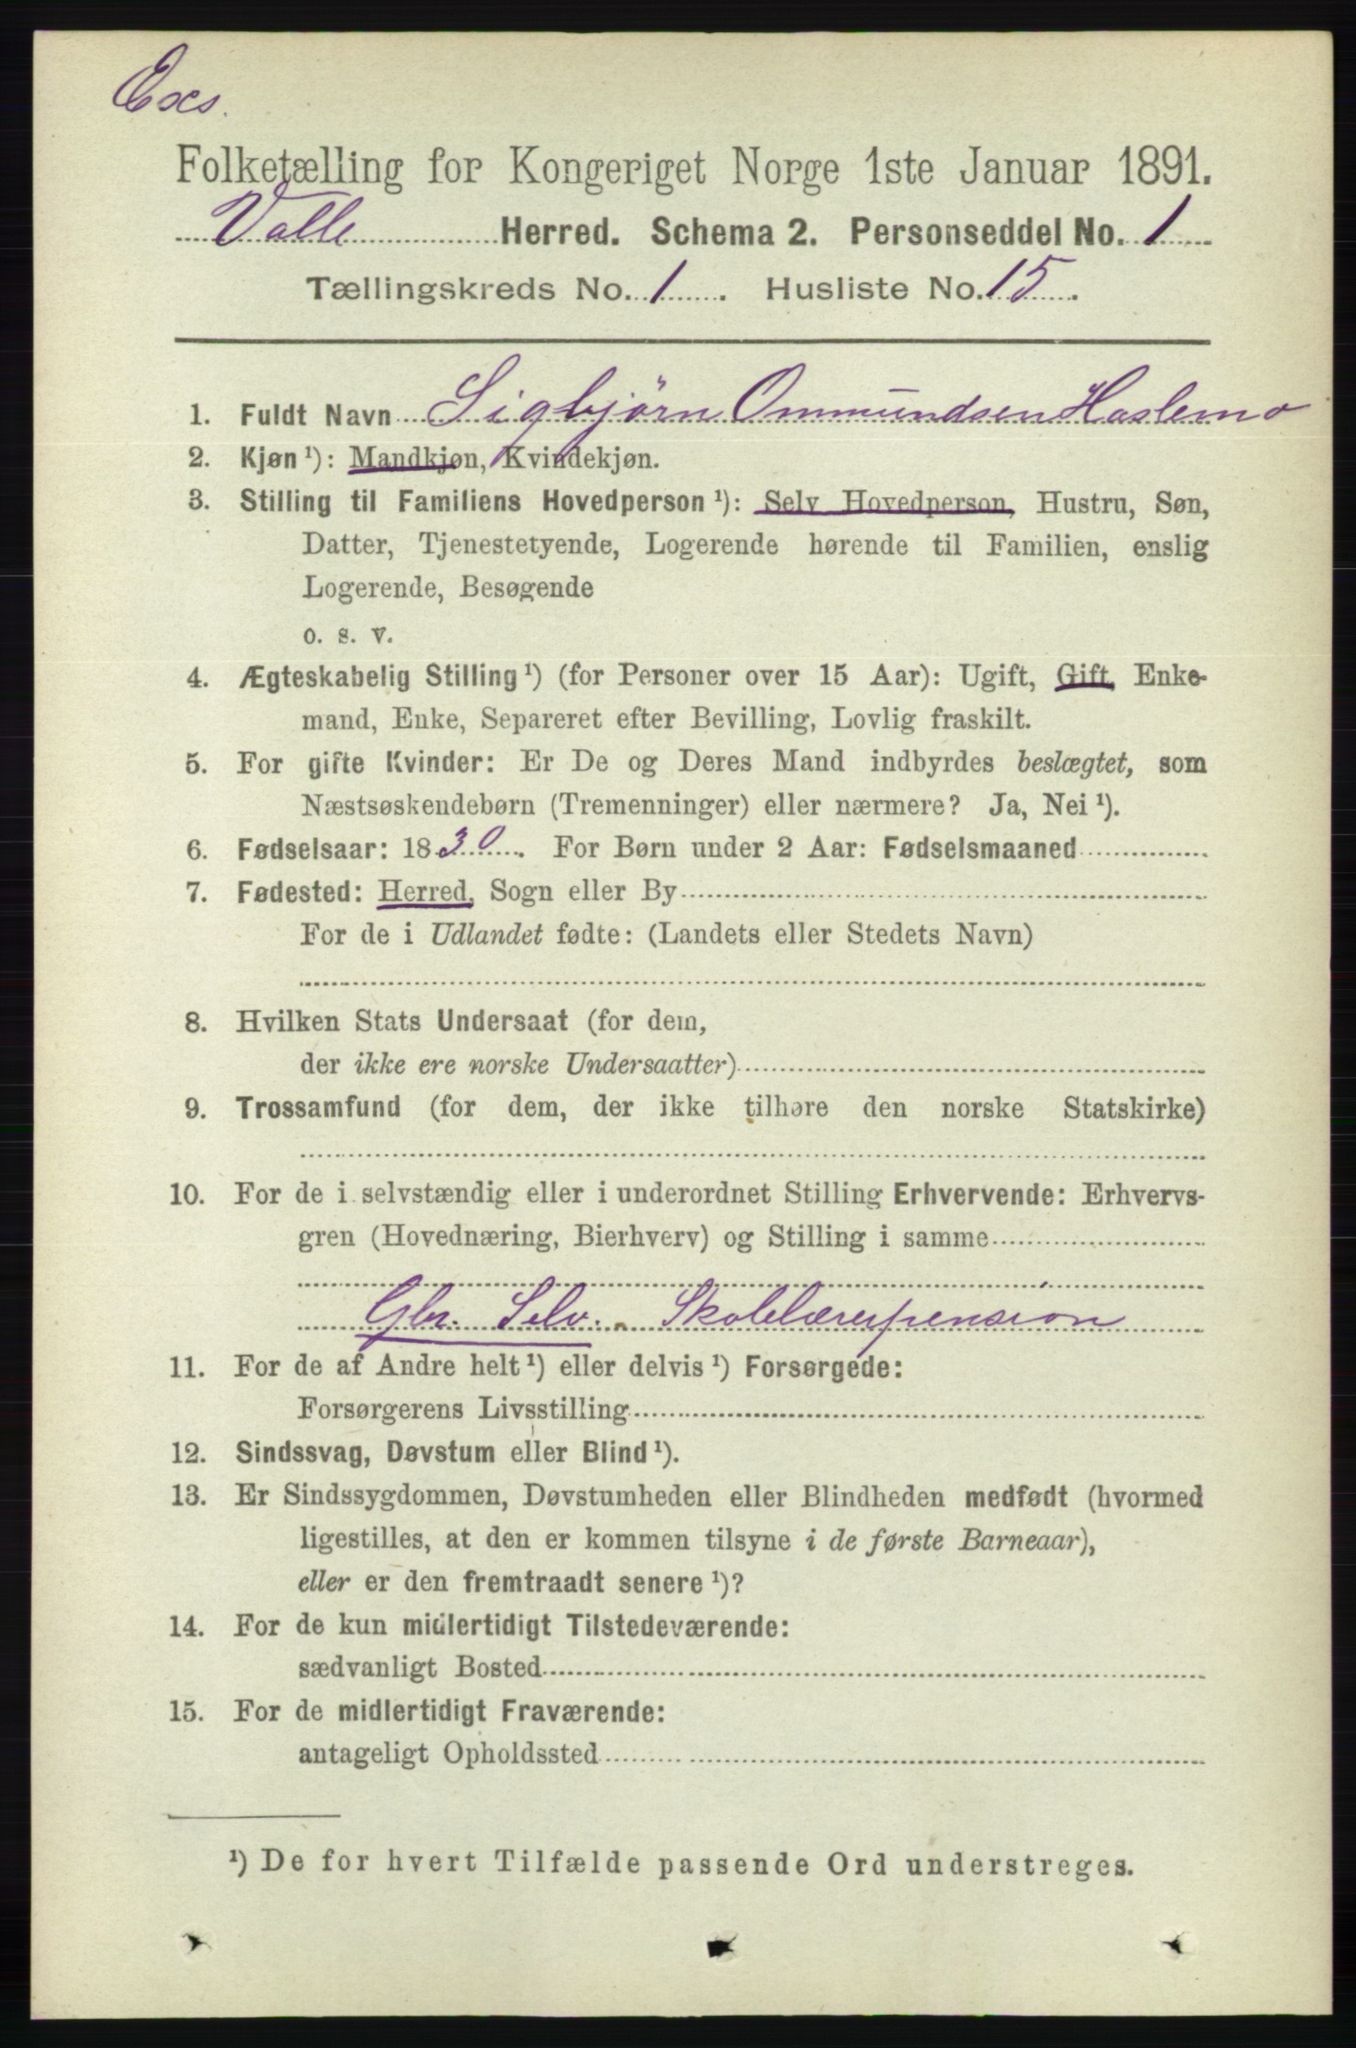 Exs.
Folketælling for Kongeriget Norge 1ste Januar 1891.
Valle Herred. Schema 2. Personseddel No. 1
Tællingskreds No. 1. Husliste No. 15.
1. Fuldt Navn Sigbjörn Ommundsen Haslemo
2. Kjøn¹): Mandkjøn, Kvindekjøn.
3. Stilling til Familiens Hovedperson¹): Selv Hovedperson, Hustru, Søn,
Datter, Tjenestetyende, Logerende hørende til Familien, enslig
Logerende, Besøgende
o. s. v.
4. Ægteskabelig Stilling¹) (for Personer over 15 Aar): Ugift, Gift, Enke-
mand, Enke, Separeret efter Bevilling, Lovlig fraskilt.
5. For gifte Kvinder: Er De og Deres Mand indbyrdes beslægtet, som
Næstsøskendebørn (Tremenninger) eller nærmere? Ja, Nei¹).
6. Fødselsaar: 1830. For Børn under 2 Aar: Fødselsmaaned
7. Fødested: Herred, Sogn eller By
For de i Udlandet fødte: (Landets eller Stedets Navn)
8. Hvilken Stats Undersaat (for dem,
der ikke ere norske Undersaatter)
9. Trossamfund (for dem, der ikke tilhøre den norske Statskirke)
10. For de i selvstændig eller i underordnet Stilling Erhvervende: Erhvervs-
gren (Hovednæring, Bierhverv) og Stilling i samme
Gbr. Selv. Skolelærerpension
11. For de af Andre helt¹) eller delvis¹) Forsørgede:
Forsørgerens Livsstilling
12. Sindssvag, Døvstum eller Blind¹).
13. Er Sindssygdommen, Døvstumheden eller Blindheden medfødt (hvormed
ligestilles, at den er kommen tilsyne i de første Barneaar),
eller er den fremtraadt senere¹)?
14. For de kun midlertidigt Tilstedeværende:
sædvanligt Bosted
15. For de midlertidigt Fraværende:
antageligt Opholdssted
¹) De for hvert Tilfælde passende Ord understreges.